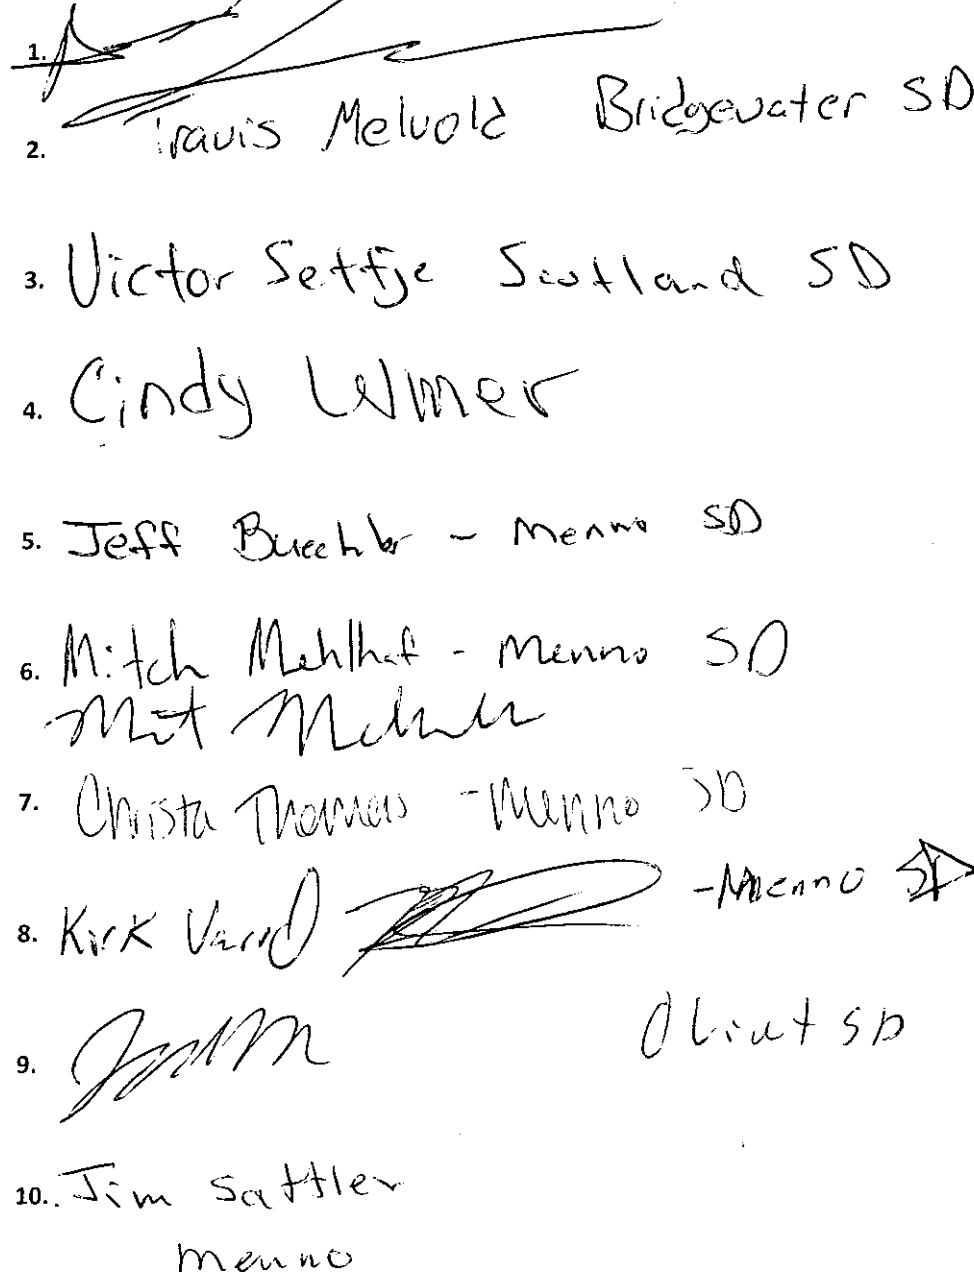 1.
2. Travis Melvold Bridgewater SD
3. Victor Settje Scotland SD
4. Cindy
5. Jeff Buechler - Menno SD
6. Mitch Mehlhaf - Menno SD
7. Christa Thomas - Menno SD
8. Kirk - Menno SD
9. Olivet SD
10. Jim Sattler
Menno